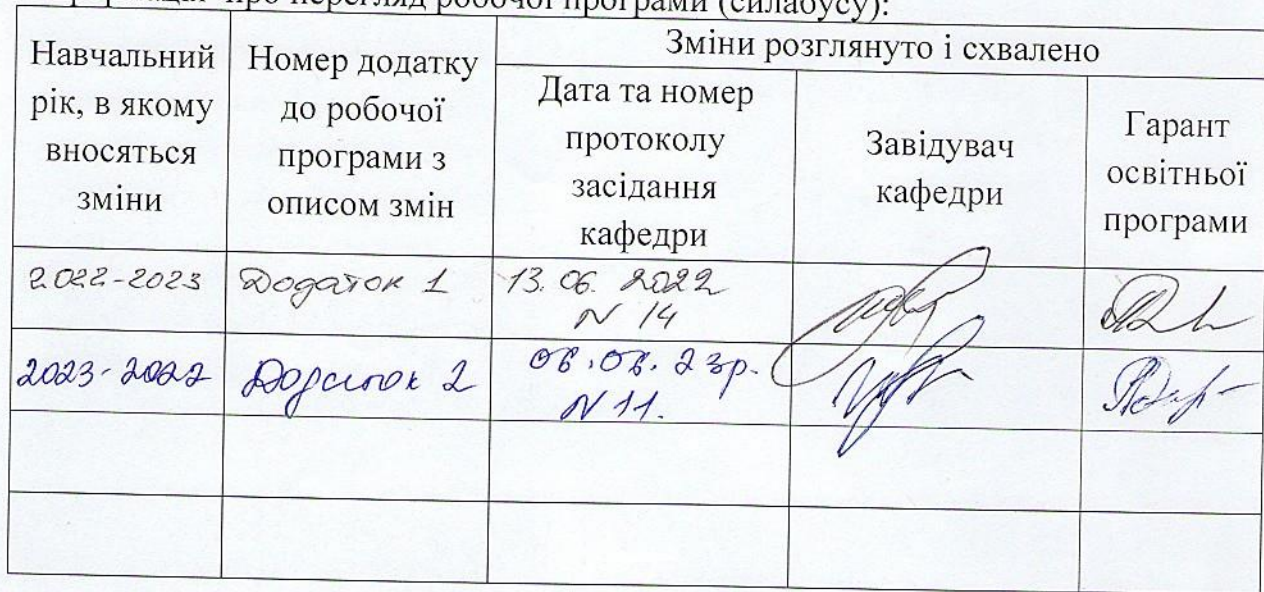 про перегляд робочої програми (силабусу):
Навчальний рік, в якому вносяться зміни
Номер додатку до робочої програми з описом змін
Зміни розглянуто і схвалено
Дата та номер протоколу засідання кафедри
Завідувач кафедри
Гарант освітньої програми
2022-2023 Додаток 1 13.06.2022
N 14
2023-2022 Додаток 2 06.06.23р.
N 11.